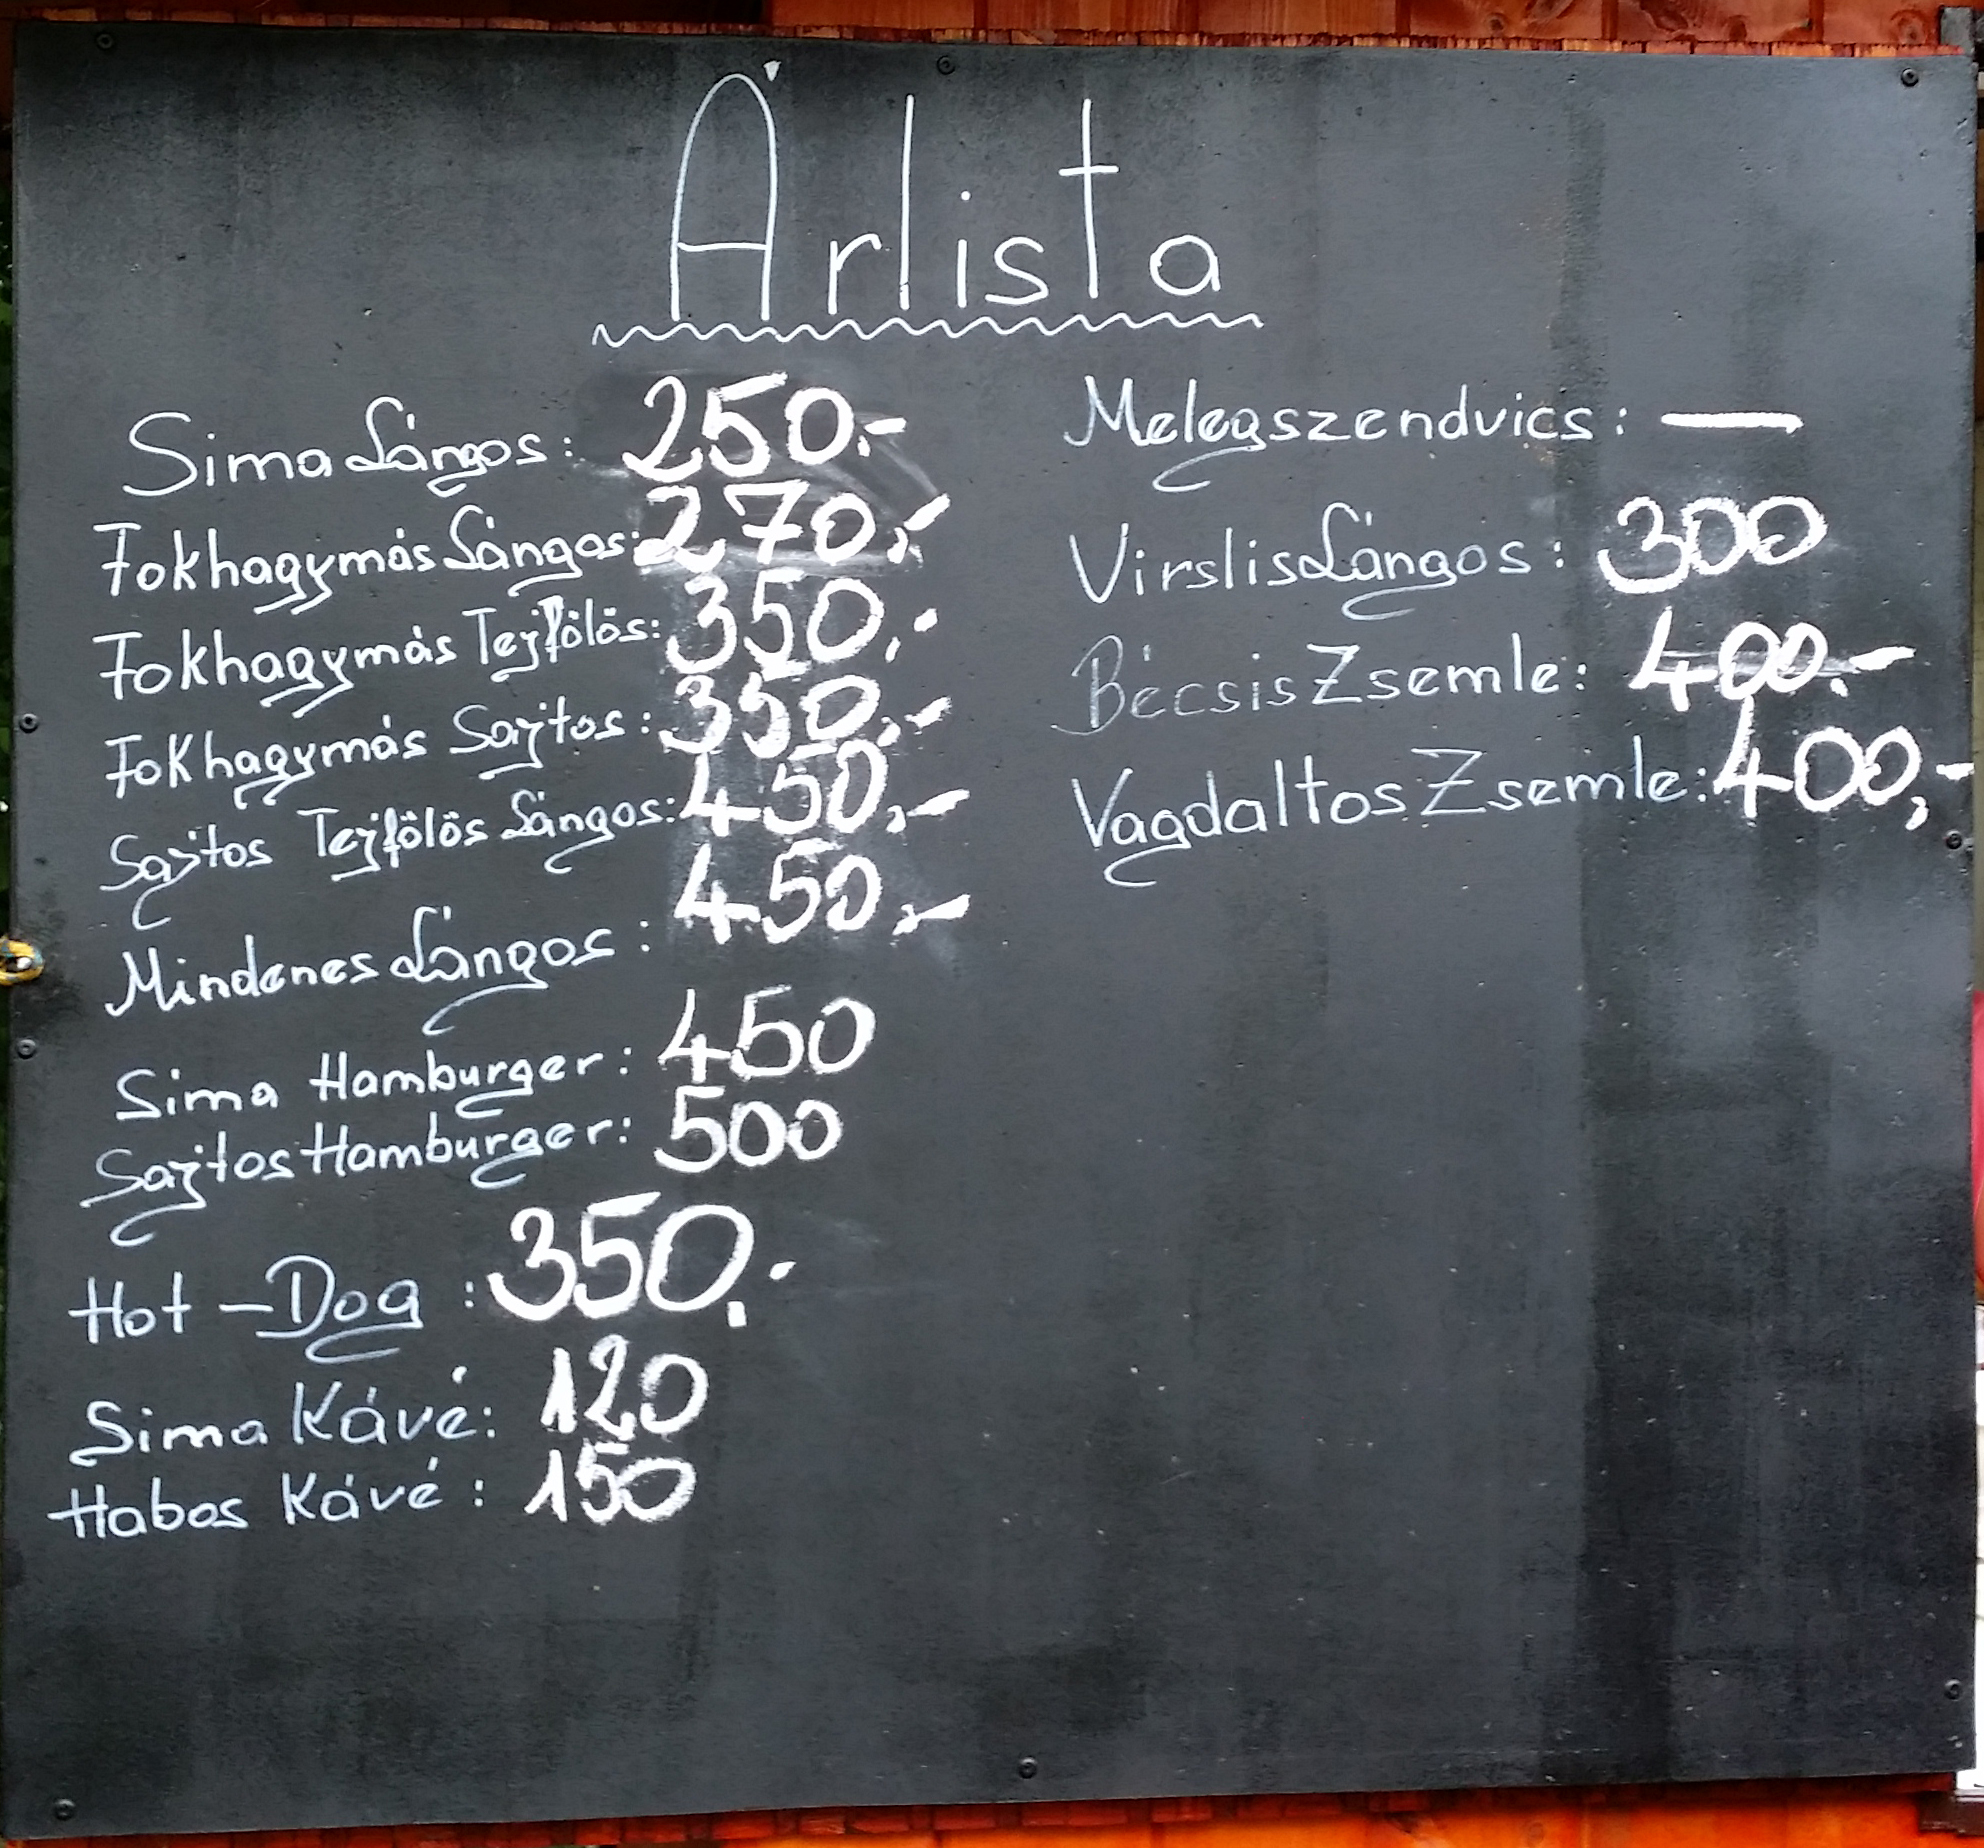 Árlista
Sima Lángos: 250.-
Fokhagymás Lángos: 270,-
Fokhagymás Tejfölös: 350,-
Fokhagymás Sajtos: 350,-
Sajtos Tejfölös Lángos: 450,-
Mindenes Lángos: 450,-
Sima Hamburger: 450
Sajtos Hamburger: 500
Hot-Dog: 350,-
Sima Kávé: 120
Habos Kávé: 150
Melegszendvics: —
Virslis Lángos: 300
Bécsis Zsemle: 400.-
Vagdaltos Zsemle: 400,-